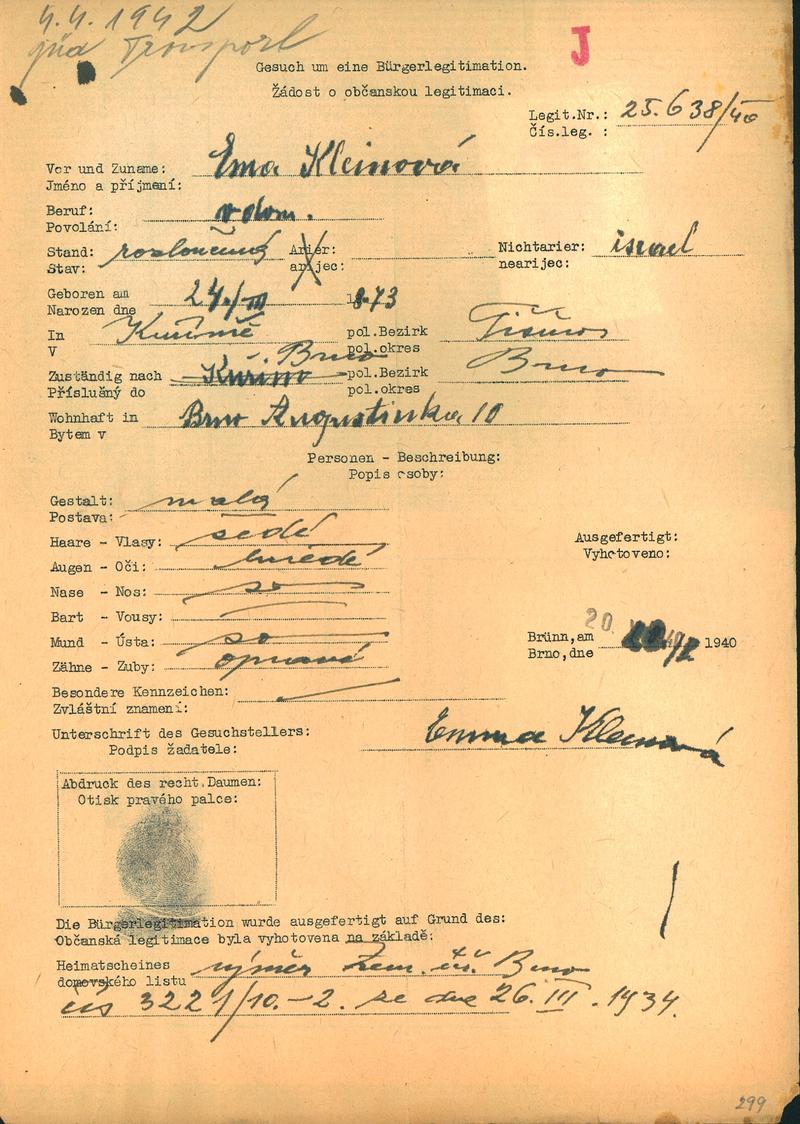 4.4.1942
jüd Transport
J
Gesuch um eine Bürgerlegitimation.
Žádost o občanskou legitimaci.
Legit.Nr.: 25.638/40
Čís.leg. :
Vor und Zuname: Ema Kleinová
Jméno a příjmení:
Beruf: v dom.
Povolání:
Stand: rozloučená Arier: Nichtarier: israel
Stav: arijec: nearijec:
Geboren am 24./III 1873
Narozen dne
In Kuřimě pol.Bezirk Tišnov
V pol.okres
Brno
Zuständig nach Kuřim pol.Bezirk Brno
Příslušný do pol.okres
Wohnhaft in Brno Augustinka 10
Bytem v
Personen - Beschreibung:
Popis osoby:
Gestalt: malá
Postava:
Haare - Vlasy: šedé
Augen - Oči: hnědé
Nase - Nos: so
Bart - Vousy:
Mund - Ústa: so
Zähne - Zuby:
Ausgefertigt:
Vyhotoveno:
Brünn,am 20 1940
Brno,dne
Besondere Kennzeichen:
Zvláštní znamení:
Unterschrift des Gesuchstellers: Emma Kleinová
Podpis žadatele:
Abdruck des recht.Daumen:
Otisk pravého palce:
Die Bürgerlegitimation wurde ausgefertigt auf Grund des:
Občanská legitimace byla vyhotovena na základě:
Heimatscheines výměr zem. úř. Brno
domovského listu
čís 3221/10.-2. ze dne 26. III. 1934.
299